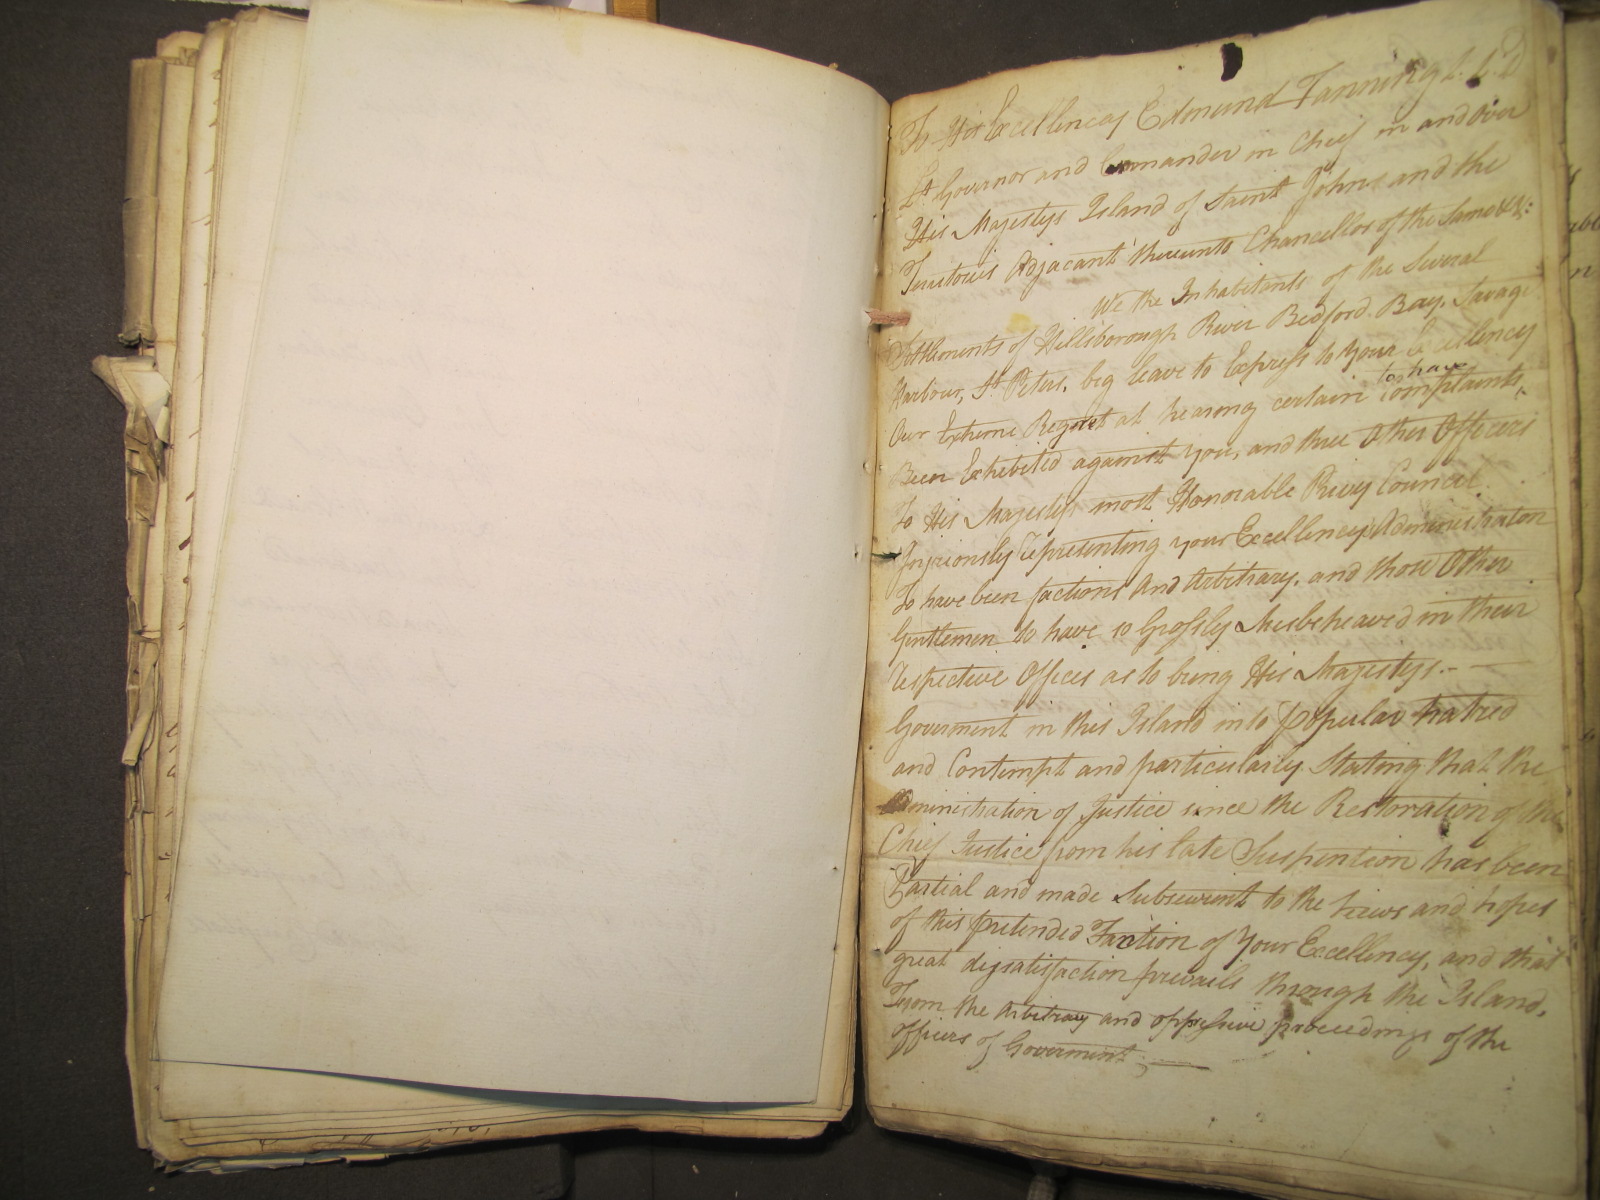 To His Excellency Edmund Fanning L.L.D
Lt Governor and Commander in Chief in and Over
His Majestys Island of Saint Johns and the
Territories Adjacant thereunto Chancellor of the Same &c &c:
We the Inhabitants of the Several
Settlements of Hillsborough River Bedford Bay, Savage
Harbour, St Peters, beg leave to Express to Your Excellency
Our Extreme Regret at hearing certain Complaints,
to have
Been Exhibited against you, and three Other Officers
To His Majestys most Honorable Privy Council
Injuriously representing your Excellencys Administration
To have been factious And Arbitrary, and those Other
Gentlemen to have so Grossly Misbeheaved in their
respective Offices as to bring His Majestys.-
Goverment in this Island into popular hatred
and Contempt and particularly Stating that the
Administration of Justice since the Restoration of the
Chief Justice from his late Suspention has been
Partial and made Subservient to the views and hopes
of this pretended Faction of Your Excellency, and that
great dissatisfaction prevails through the Island,
From the Arbitrary and oppressive proceedings of the
Officers of Goverment;